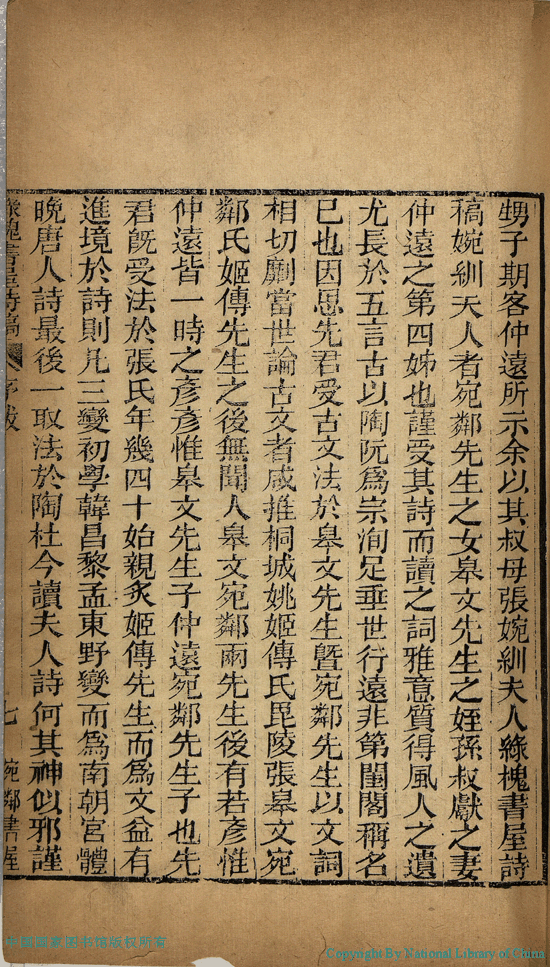 甥子期客仲遠所示余以其叔母張婉紃夫人綠槐書屋詩
稿婉紃夫人者宛鄰先生之女皋文先生之姪孫叔獻之妻
仲遠之第四姊也謹受其詩而讀之詞雅意質得風人之遺
尤長於五言古以陶阮為宗洵足垂世行遠非第閨閣稱名
已也因思先君受古文法於皋文先生曁宛鄰先生以文詞
相切劘當世論古文者咸推桐城姚姬傳氏毘陵張皋文宛
鄰氏姬傳先生之後無聞人皋文宛鄰兩先生後有若彥惟
仲遠皆一時之彥彥惟皋文先生子仲遠宛鄰先生子也先
君旣受法於張氏年幾四十始親炙姬傳先生而為文益有
進境於詩則凡三變初學韓昌黎孟東野變而為南朝宮體
晚唐人詩最後一取法於陶杜今讀夫人詩何其神似邪謹
綠槐書屋詩稿 序跋 七 宛鄰書屋
中國國家图书馆版权所有
Copyright By National Library of China